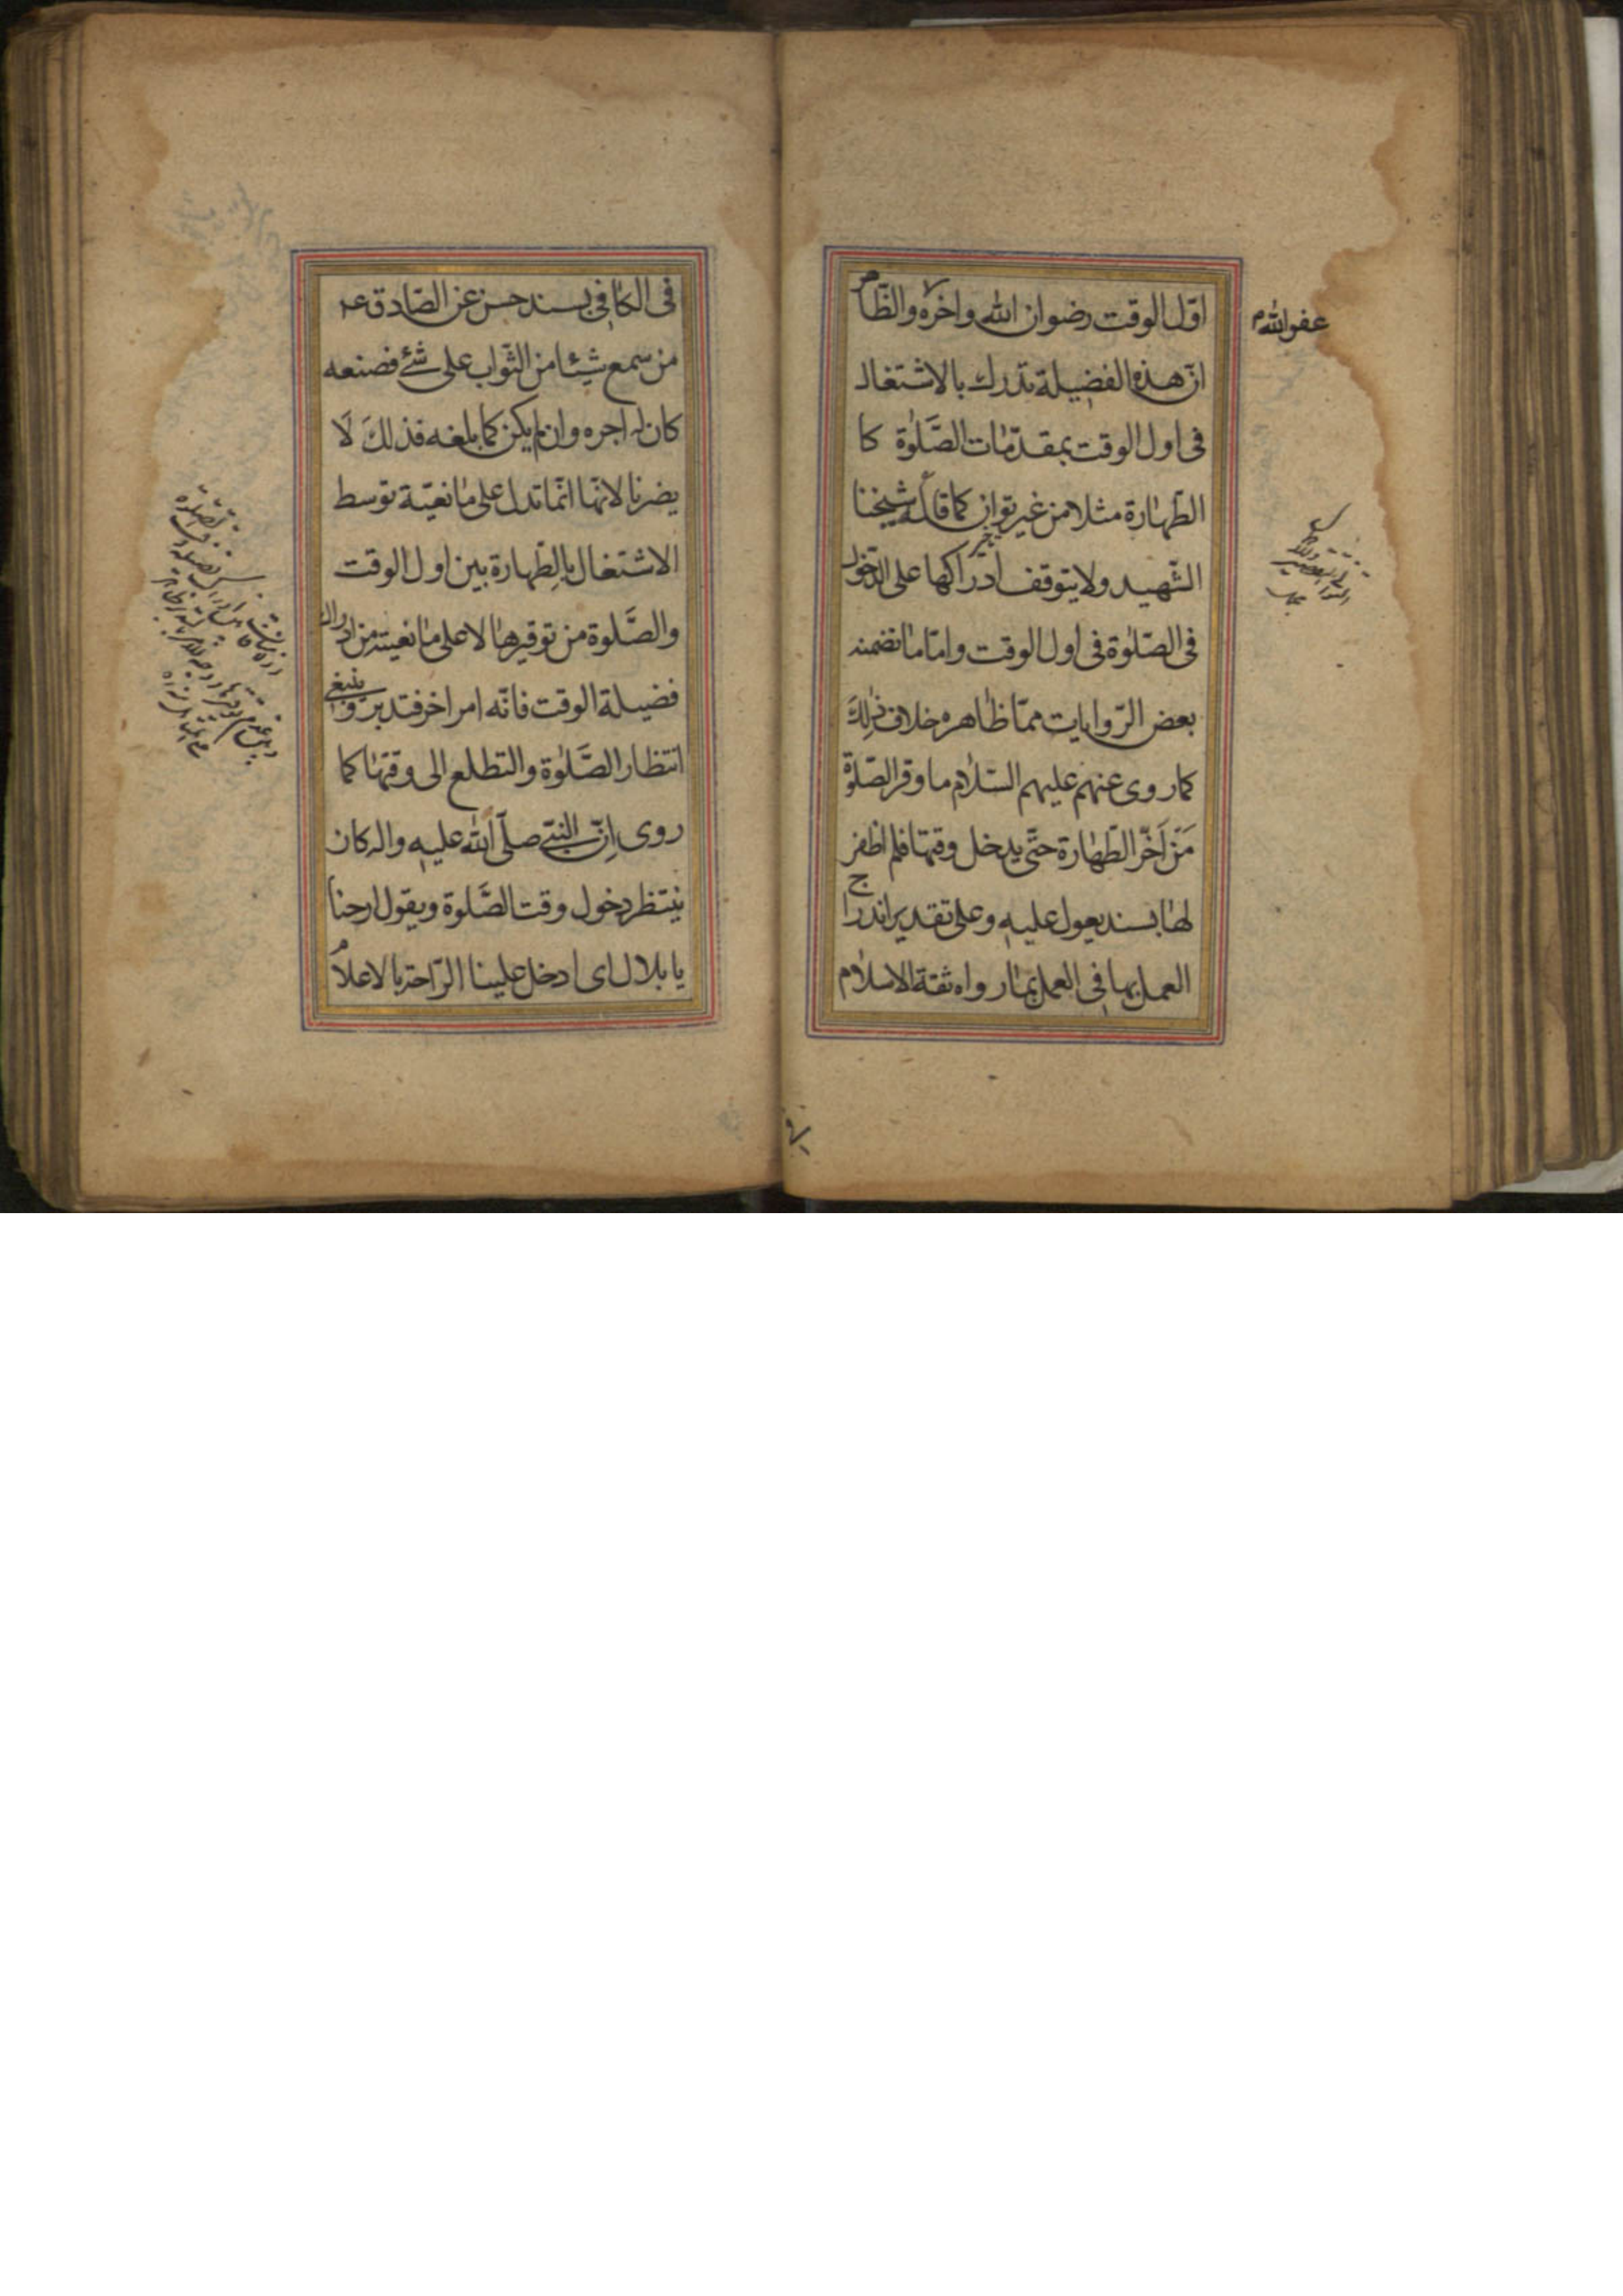 اوّل الوقت رضوان الله واخره والظّاهر
عفو الله
انّ هذه الفضيلة تدرك بالاشتغال
فى اول الوقت بمقدّمات الصَّلوة كا
الطّهارة مثلا من غير توان كما قاله شيخنا
الشّهيد ولا يتوقف ادراكها على الدّخول
فى الصّلوة فى اول الوقت وامّا ما تضمنه
بعض الرّوايات ممّا ظاهره خلاف ذلكَ
كما روى عنهم عليهم السّلام ما وقر الصّلوة
مَنْ اَخّر الطّهارة حتّى يدخل وقتها فلم اظفر
لها بسند يعول عليه وعلى تقدير اندراج
العمل بها فى العمل بما رواه ثقة الاسلام
فى الكافى بسند حسن عن الصّادق ع
من سمع شيئا من الثّواب على شئ فصنعه
كان له اجره وان لم يكن كما بلغه فذلكَ لَا
يضرنا لانّها انّما تدل على مانعيّة توسط
الاشتغال بالطّهارة بين اول الوقت
والصَّلوة من توقيرها لا على مانعيته من ادراك
فضيلة الوقت فانّه امر اخر فتدبر وينبغى
انتظار الصَّلوة والتطلع الى وقتها كما
روى انّ النبىّ صلّى الله عليه واله كان
ينتظر دخول وقت الصَّلوة ويقول ارحنا
يا بلال اى ادخل علينا الرّاحة بالاعلام